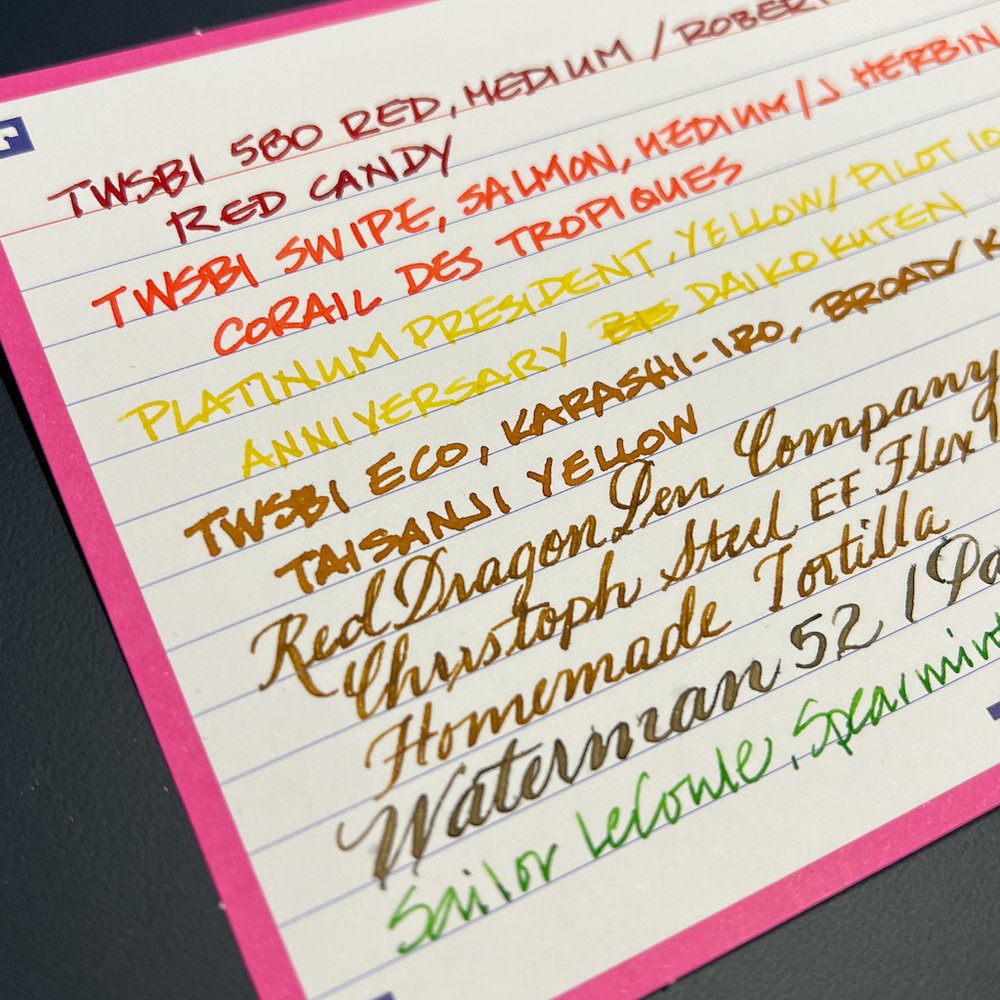 TWSBI 580 RED, MEDIUM / ROBERT
RED CANDY
TWSBI SWIPE, SALMON, MEDIUM / J HERBIN
CORAIL DES TROPIQUES
PLATINUM PRESIDENT, YELLOW / PILOT 10
ANNIVERSARY DAIKOKUTEN
TWSBI ECO, KARASHI-IRO, BROAD / K
TAISANJI YELLOW
Red Dragon Pen Company
Christoph Steel EF Flex
Homemade Tortilla
Waterman 52 / Pa
Sailor LeCoule, Spearmint